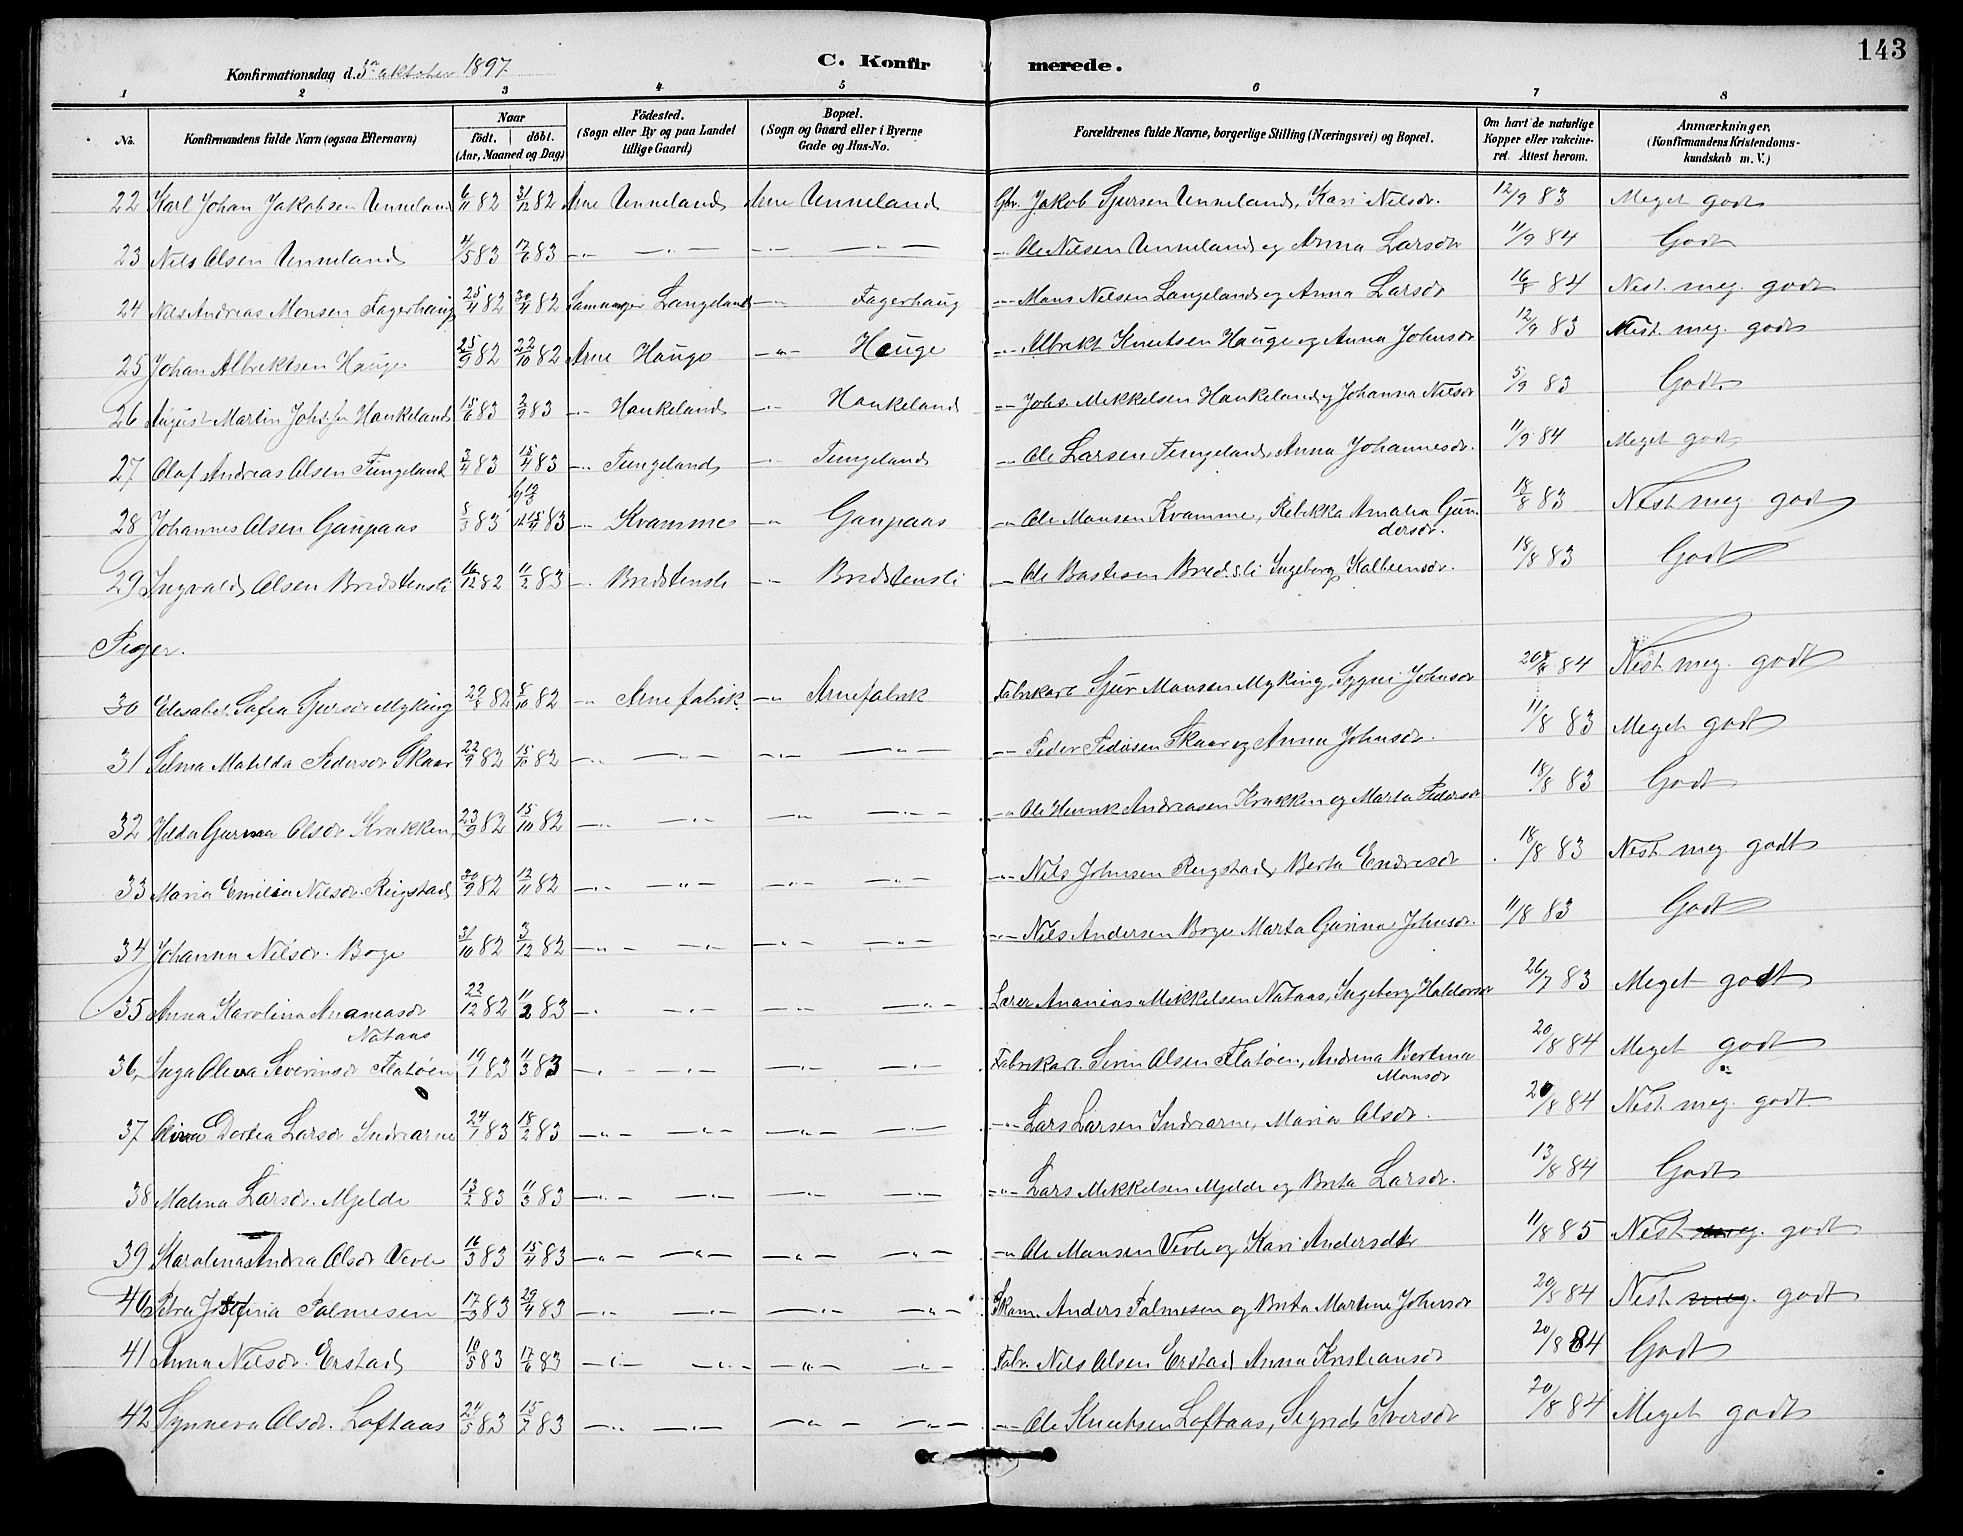 143
Konfirmationsdag d. 3die oktober 1897.
C. Konfir merede.
1 2 3 4 5 6 7 8
No. Konfirmandens fulde Navn (ogsaa Efternavn) Naar født. døbt. (Aar, Maaned og Dag) Födested. (Sogn eller By og paa Landet tillige Gaard) Bopæl. (Sogn og Gaard eller i Byerne Gade og Hus-No. Forældrenes fulde Navne, borgerlige Stilling (Næringsvei) og Bopæl. Om havt de naturlige Kopper eller vakcineret. Attest herom. Anmærkninger. (Konfirmandens Kristendomskundskab m. V.)
22 Karl Johan Jakobsen Unneland 6/11 82 31/12 82 Arne Unneland Arne Unneland Gbr. Jakob Sjursen Unneland, Kari Nilsdr. 12/9 83 Meget godt
23 Nils Olsen Unneland 11/5 83 17/6 83 -"- -"- -"- -"- -"- Ole Nilsen Unneland og Anna Larsdr 11/9 84 Godt
24 Nils Andreas Monsen Fagerhaug 25/4 82 30/4 82 Samnanger Langeland -"- Fagerhaug -"- Mons Nilsen Langeland og Anna Larsdr 16/8 84 Nest. meg. godt
25 Johan Albrektsen Hauge 25/9 82 22/10 82 Arne Hauge -"- Hauge -"- Albrekt Knutsen Hauge og Anna Johnsdr 12/9 83 Nest. meg. godt
26 August Martin Johs.sen Haukeland 15/6 83 2/9 83 -"- Haukeland -"- Haukeland -"- Johs. Mikkelsen Haukeland og Johanna Nilsdr 5/9 83 Godt.
27 Olaf Andreas Olsen Tungeland 3/4 83 15/4 83 -"- Tungeland -"- Tungeland -"- Ole Larsen Tungeland, Anna Johannesdr. 11/9 84 Meget godt
28 Johannes Olsen Gaupaas 5/3 83 15/4 83 -"- Kvamme -"- Gaupaas -"- Ole Monsen Kvamme, Rebekka Amalia Gun-
dersdr. 18/8 83 Nest. meg. godt
29 Ingvald Olsen Bredstensli 16/12 82 11/2 83 -"- Bredstensli -"- Bredstensli -"- Ole Bastesen Bred.sli Ingeborg 18/8 83 Godt
Piger.
30 Elisabet Sofia Sjursdr Myking 29/8 82 8/10 82 -"- Arne fabrik -"- Arne fabrik Fabrikarb. Sjur Monsen Myking, Sygni Johnsdr 20/8 84 Nest. meg. godt
31 Selma Matilda Pedersdr Skaar 22/9 82 15/10 82 -"- -"- -"- -"- -"- Peder Pedersen Skaar og Anna Johnsdr. 11/8 83 Meget godt
32 Hilda Gurina Olsdr Krakken 23/9 82 15/10 82 -"- -"- -"- -"- -"- Ole Henrik Andreasen Krakken og Marta Pedersdr 18/8 83 Godt
33 Maria Emilia Nilsdr. Reigstad 30/9 82 12/11 82 -"- -"- -"- -"- -"- Nils Johnsen Reigstad, Berta Endresdr 18/8 83 Nest. meg. godt
34 Johanna Nilsdr. Boge 31/10 82 3/12 82 -"- -"- -"- -"- -"- Nils Andersen Boge Marta Gurina Johnsdr. 11/8 83 Godt
35 Anna Karolina Ananiasdr
Nataas 22/12 82 11/2 83 -"- -"- -"- -"- Lærer Ananias Mikkelsen Nataas, Ingeborg Haldorsdr 26/7 83 Meget godt
36 Inga Oliva Severinsdr Flatøen 19/1 83 11/3 83 -"- -"- -"- -"- Fabrikarb. Sevrin Olsen Flatøen, Andrina Bertina
Monsdr 20/8 84 Meget godt
37 Dortea Larsdr Indrearne 24/1 83 18/2 83 -"- -"- -"- -"- -"- Lars Larsen Indrearne, Maria Olsdr. 20/8 84 Nest. meg. godt
38 Malena Larsdr. Mjelde 13/2 83 11/3 83 -"- -"- -"- -"- -"- Lars Mikkelsen Mjelde og Brita Larsdr. 13/8 84 Godt
39 Karolina Andrea Olsdr Vevle 16/3 83 15/4 83 -"- -"- -"- -"- -"- Ole Monsen Vevle og Kari Andersdtr 11/8 85 Nest. meg. godt
40 Petra Josefina Palmesen 17/3 83 29/4 83 -"- -"- -"- -"- Skom. Anders Palmesen og Brita Martine Johnsdr 20/8 84 Nest. meg. godt
41 Anna Nilsdr. Erstad 10/5 83 17/6 83 -"- -"- -"- -"- Fabr. Nils Olsen Erstad Anna Kristiansdr 20/8 84 Godt
42 Synneva Olsdr. Loftaas 24/5 83 15/7 83 -"- -"- -"- -"- -"- Ole Knutsen Loftaas, Sigrid Iversdr 20/8 84 Meget godt